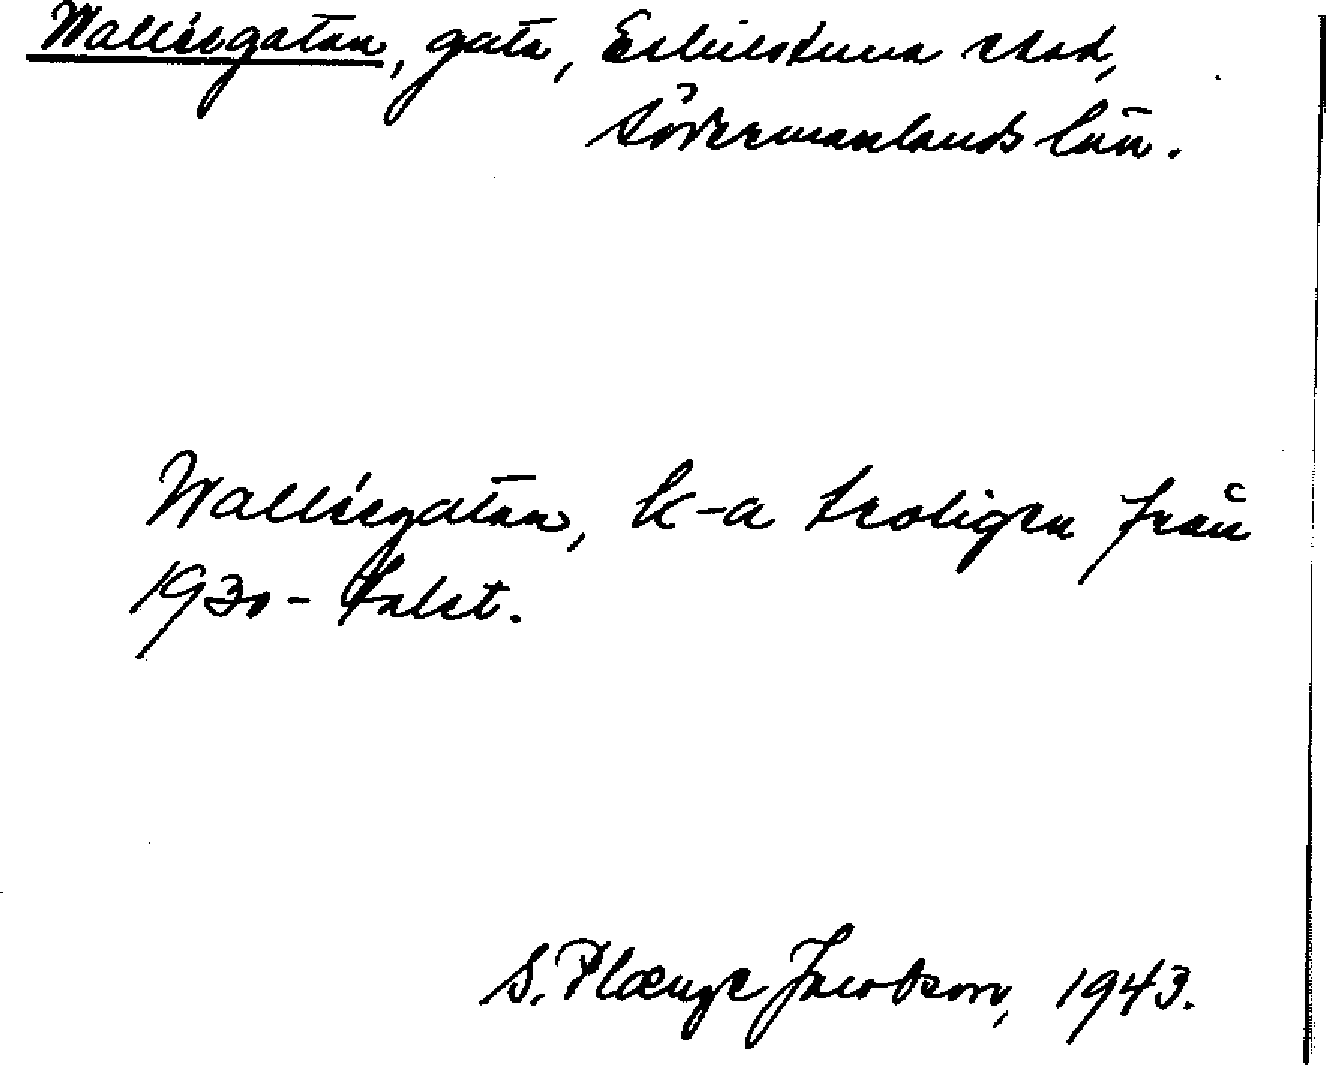 Walléegatan, gata, Eskilstuna stad,
Södermanlands län.
Walléegatan, k-a troligen från
1930-talet.
S. Plænge Jacobson, 1943.